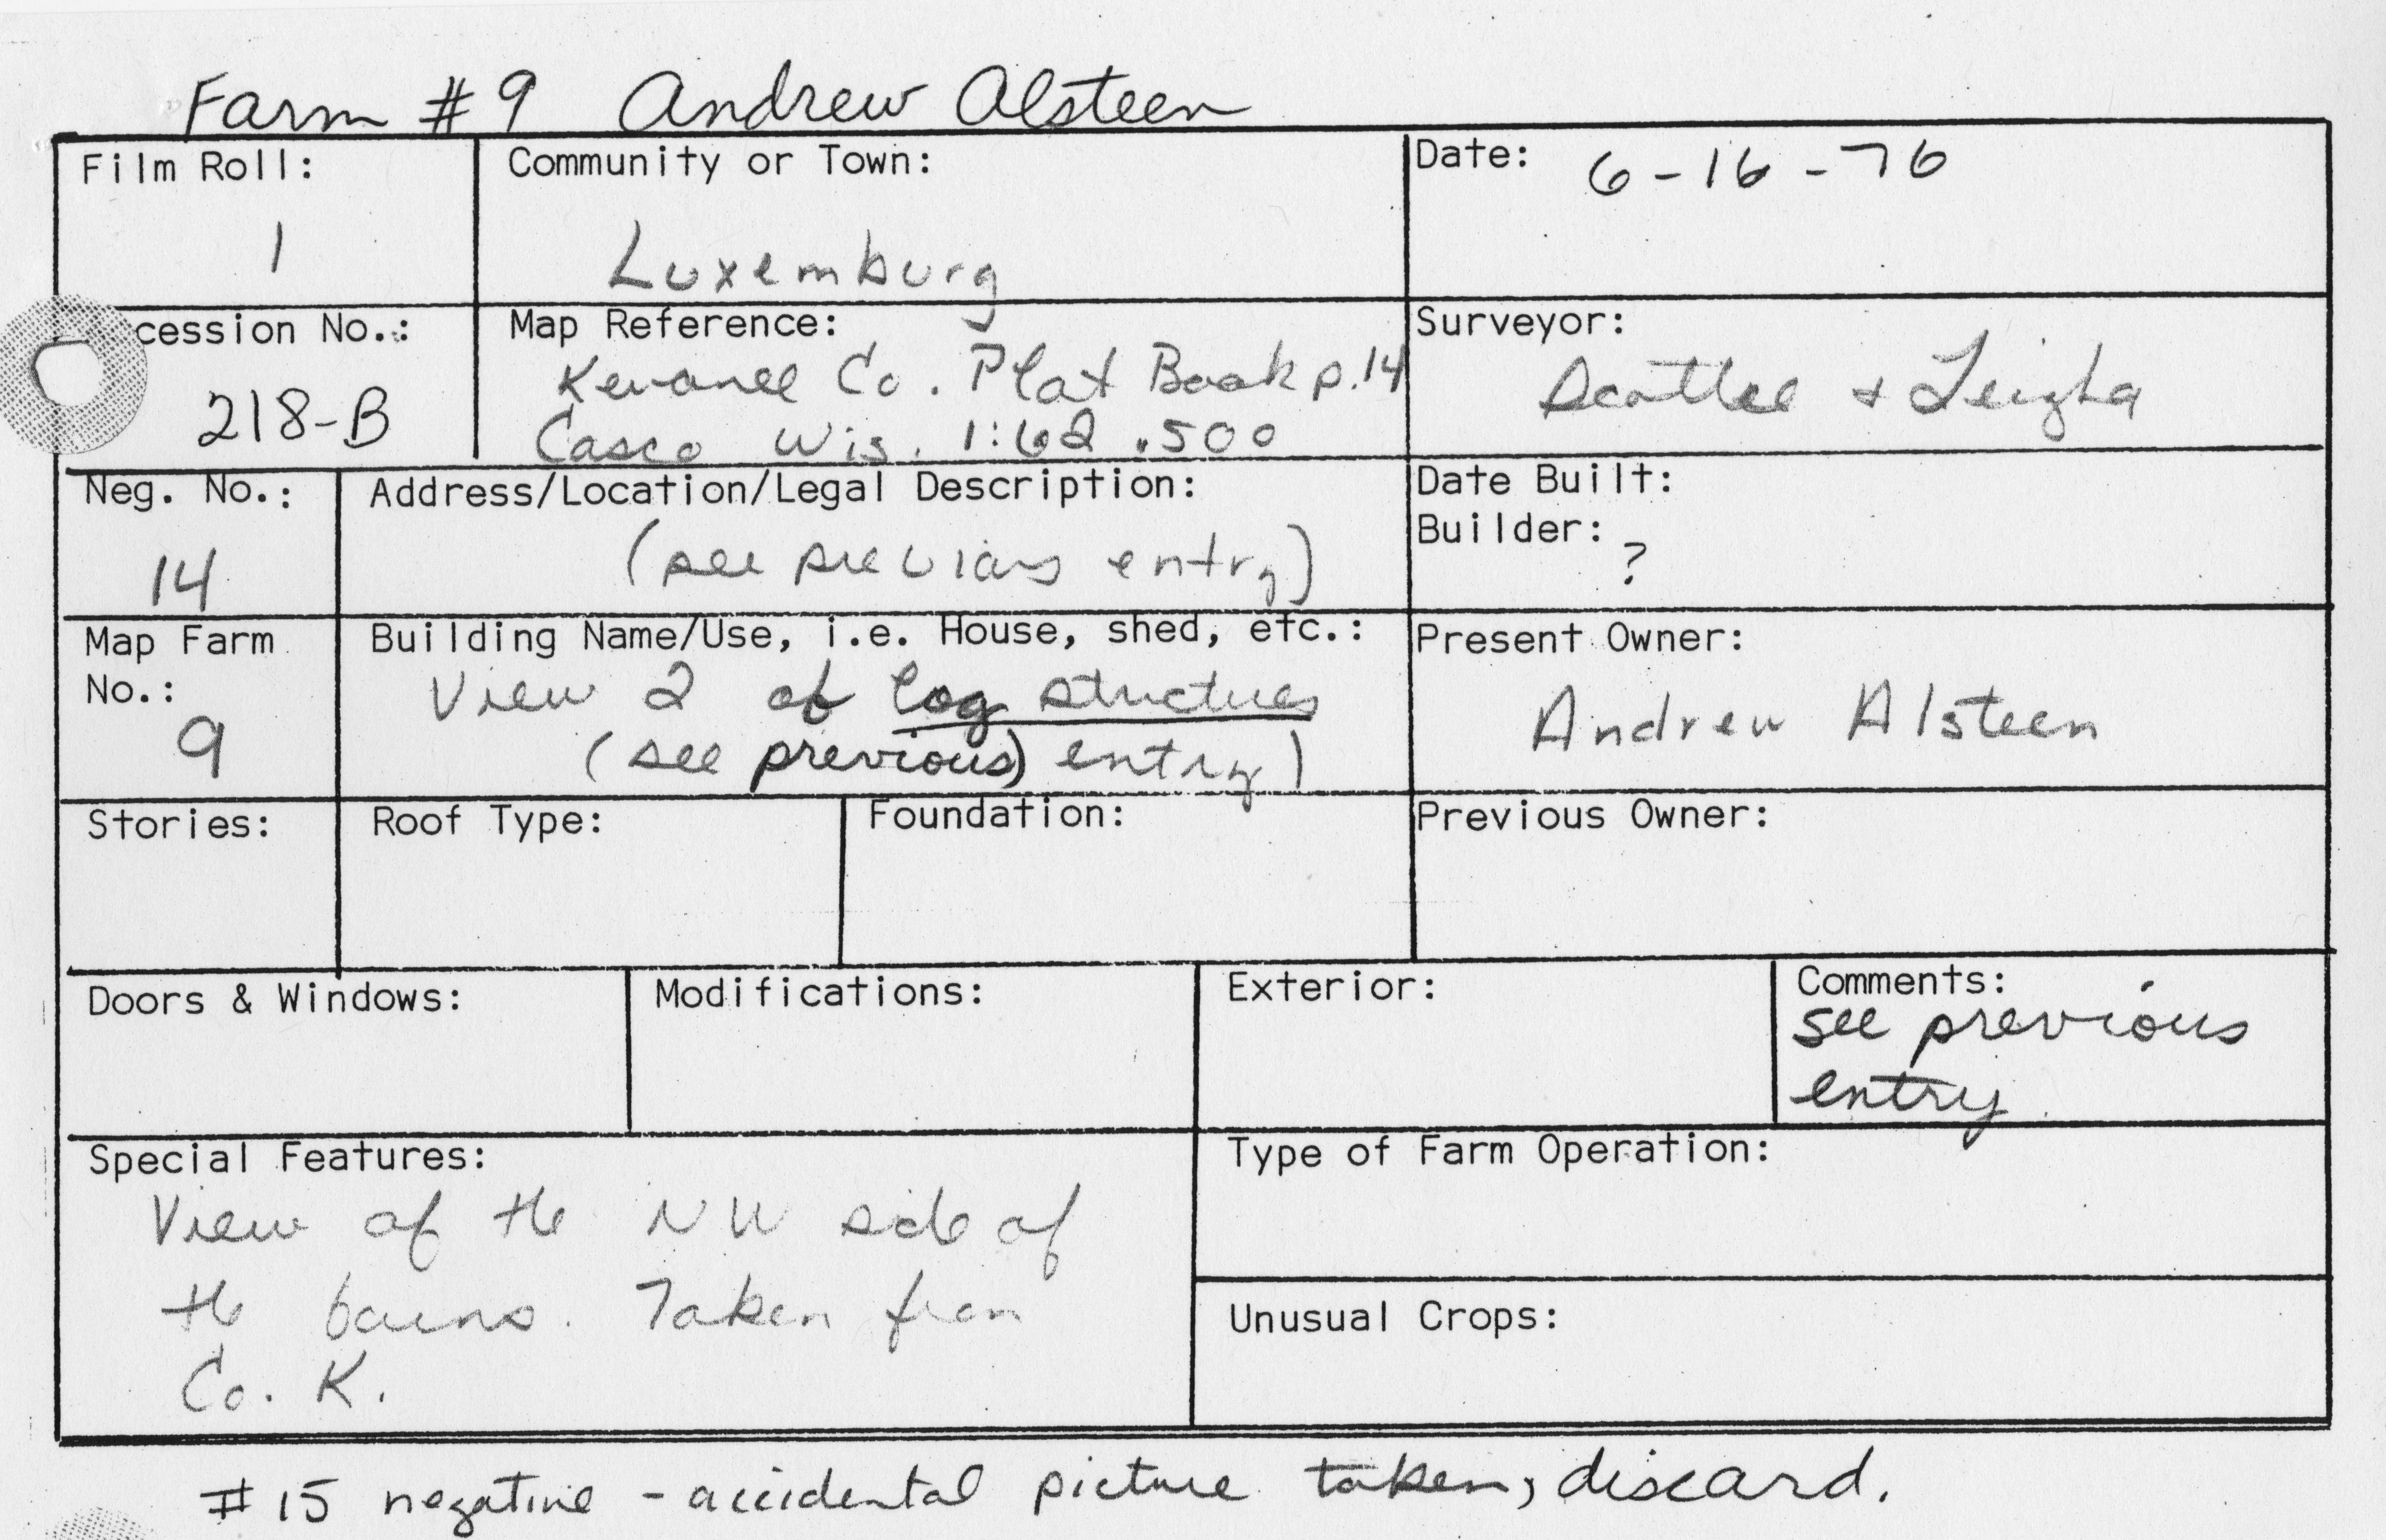 Farm # 9 Andrew Alsteen
Film Roll:
1
Community or Town:
Luxemburg
Date: 6-16-76
cession No.:
218-B
Map Reference:
Kewanee Co. Plat Book p.14
Casco Wis. 1:62.500
Surveyor:
&
Neg. No.:
14
Address/Location/Legal Description:
(see previous entry)
Date Built:
Builder:
?
Map Farm
No.:
9
Building Name/Use, i.e. House, shed, etc.:
View 2 of log structures
(see previous) entry)
Present Owner:
Andrew Alsteen
Stories:
Roof Type:
Foundation:
Previous Owner:
Doors & Windows:
Modifications:
Exterior:
Comments:
see previous
entry
Special Features:
View of the NW side of
the barns. Taken from
Co. K.
Type of Farm Operation:
Unusual Crops:
#15 negative - accidental picture taken, discard.